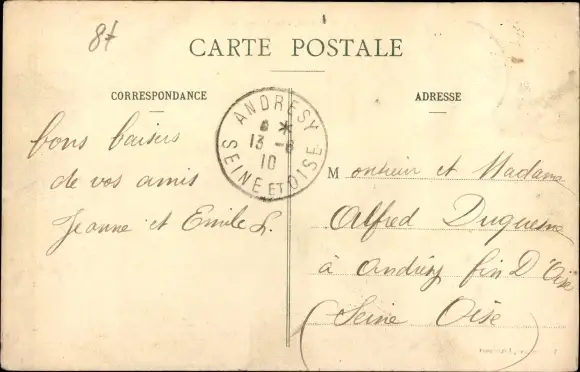 87
CARTE POSTALE
CORRESPONDANCE
ADRESSE
ANDRESY
6 *
13 -6
10
SEINE ET OISE
bons baisers
de vos amis
Jeanne et Emile L.
Monsieur et Madame
Alfred Duquesne
à Andrésy fin D'Oise
(Seine Oise)